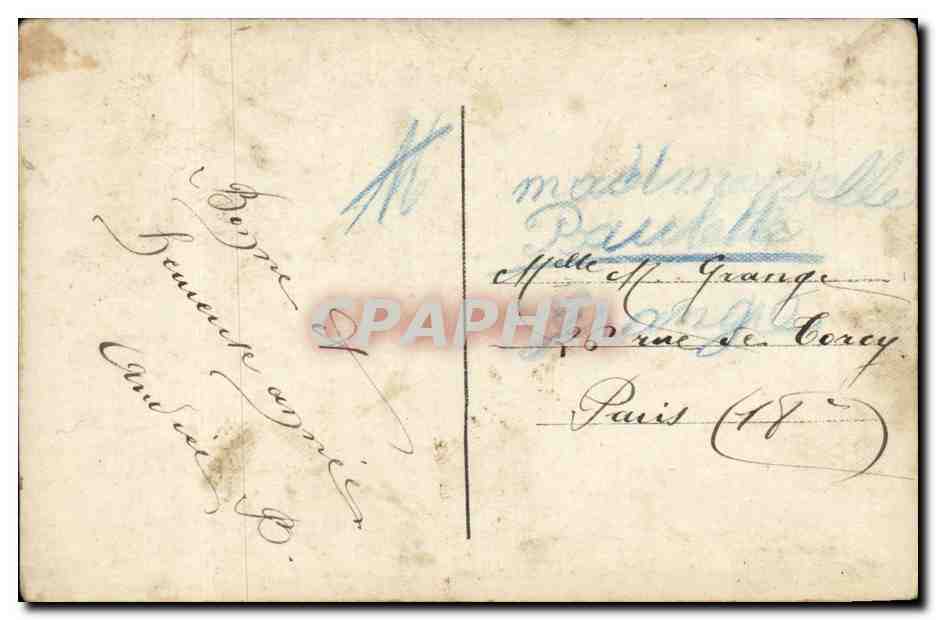 Bonne &
heureuse année
Andrée B.
Mademoiselle
Melle M. Grange
rue de Torcy
Paris (18e)
CPAPHIL